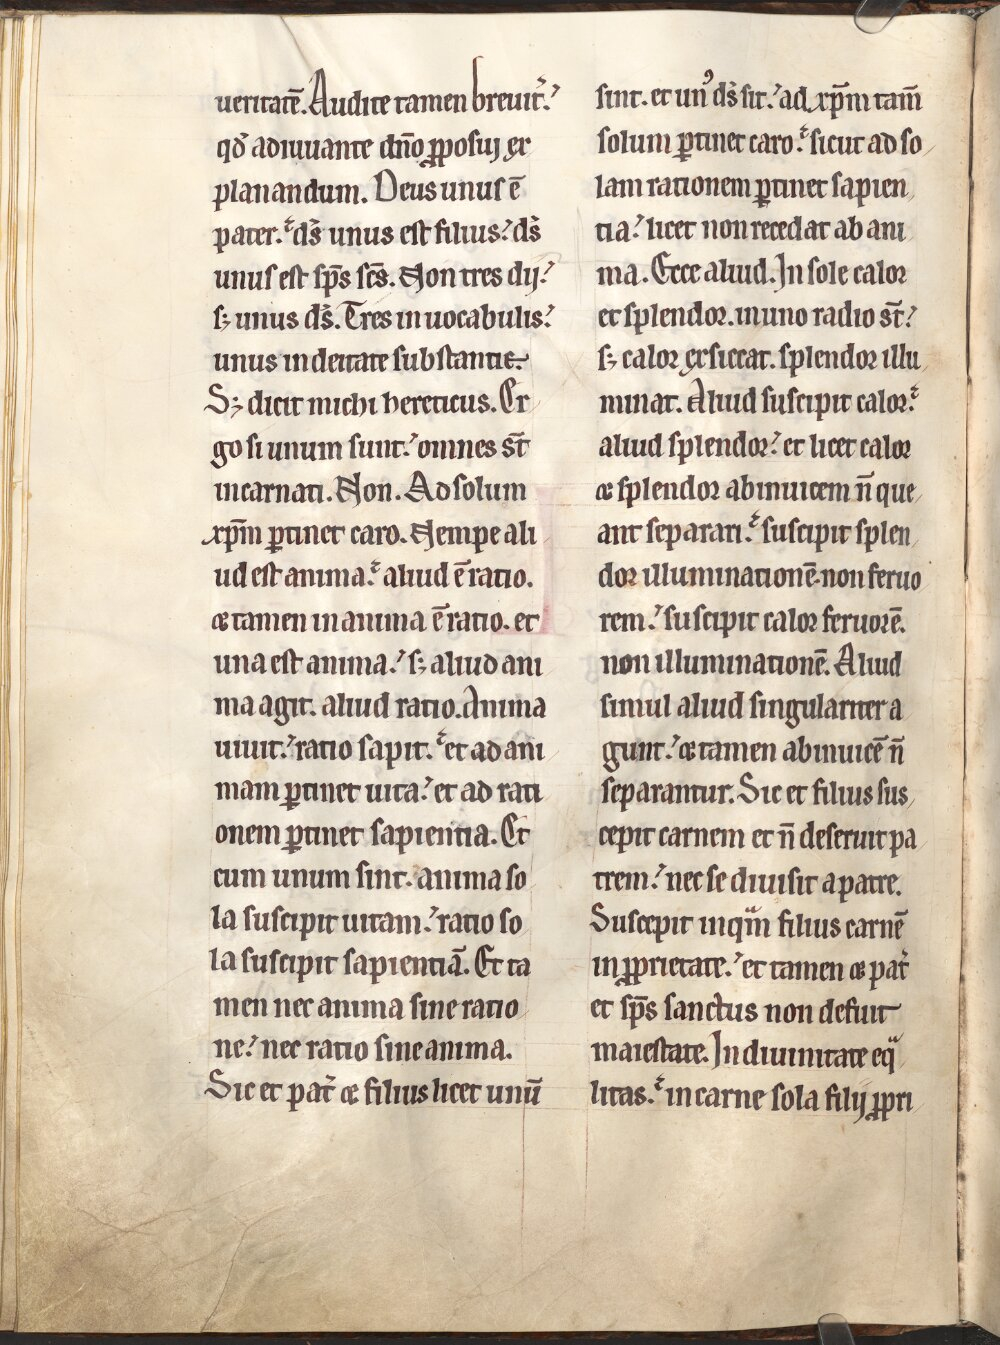 ueritatē. Audite tamen breuit̾.
qđ adiuuante dn̄o ꝓposuj ex
planandum. Deus unus ē
pater. ds̄ unus est filius. ds̄
unus est sp̄s sc̄s. Non tres dij.
sꝫ unus ds̄. Tres in uocabulis.
unus in deitate substantie.
Sꝫ dicit michi hereticus. Er
go si unum sunt. omnes st̄
incarnati. Non. Ad solum
xp̄m ꝑtinet caro. Nempe ali
ud est anima. aliud ē ratio.
& tamen in anima ē ratio. et
una est anima. sꝫ aliud ani
ma agit. aliud ratio. Anima
uiuit. ratio sapit. et ad ani
mam ꝑtinet uita. et ad rati
onem ꝑtinet sapientia. Et
cum unum sint. anima so
la suscipit uitam. ratio so
la suscipit sapientiā. Et ta
men nec anima sine ratio
ne. nec ratio sine anima.
Sic et pat̾ & filius licet unū
sint. et unꝰ ds̄ sit. ad xp̄m tam̄
solum ꝑtinet caro. sicut ad so
lam rationem ꝑtinet sapien
tia. licet non recedat ab ani
ma. Ecce aliud. In sole calor
et splendor. in uno radio st̄.
sꝫ calor exsiccat. splendor illu
minat. Aliud suscipit calor.
aliud splendor. et licet calor
& splendor abinuicem n̄ que
ant separari. suscipit splen
dor illuminationē. non feruo
rem. suscipit calor feruorē.
non illuminationē. Aliud
simul aliud singulariter a
gunt. & tamen abinuicē n̄
separantur. Sic et filius sus
cepit carnem et n̄ deseruit pa
trem. nec se diuisit a patre.
Suscepit inqͣm filius carnē
in ꝓprietate. et tamen & pat̾
et sp̄s sanctus non defuit
maiestate. In diuinitate eqͣ
litas. in carne sola filij ꝓpri